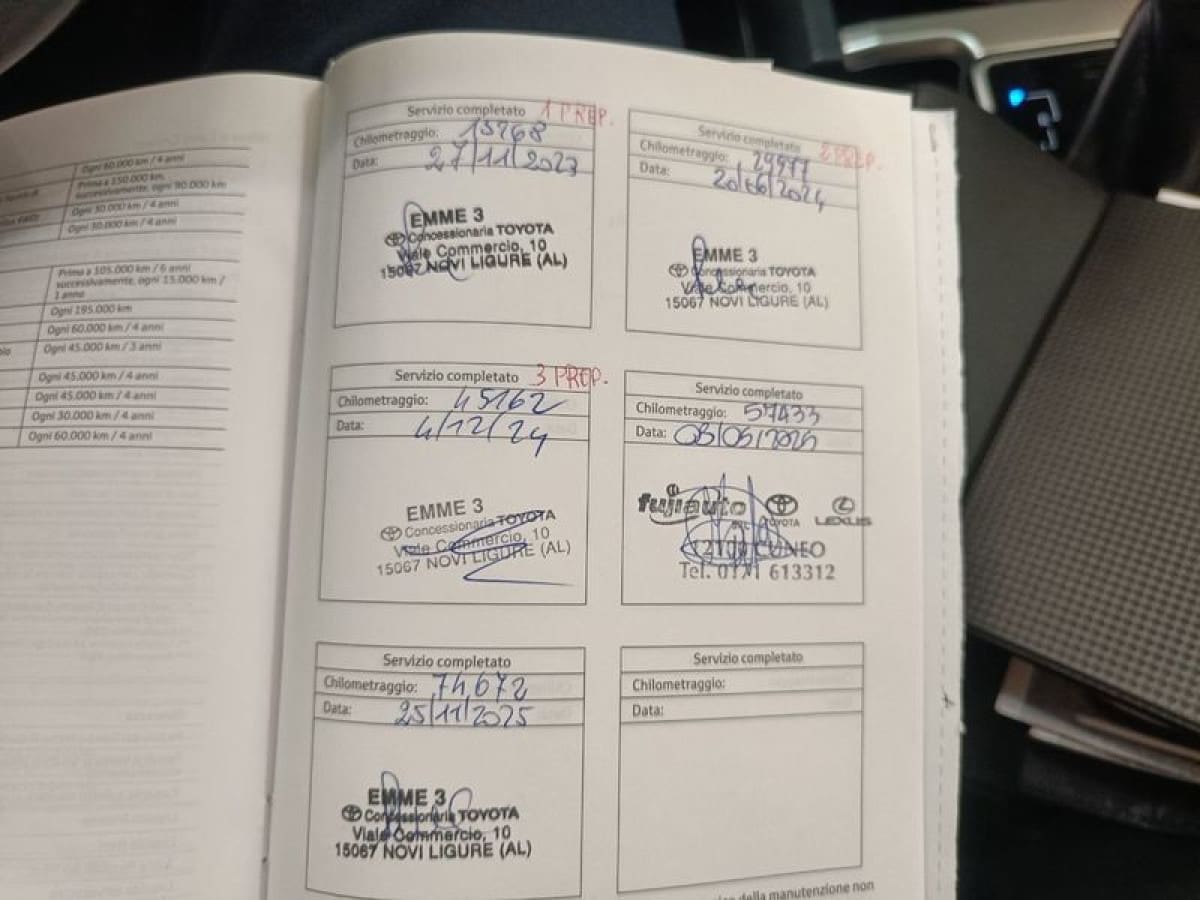 Ogni 60.000 km / 4 anni
Prima a 150.000 km,
successivamente, ogni 90.000 km
Ogni 30.000 km / 4 anni
Ogni 30.000 km / 4 anni
Prima a 105.000 km / 6 anni
successivamente, ogni 15.000 km /
1 anno
Ogni 195.000 km
Ogni 60.000 km / 4 anni
Ogni 45.000 km / 3 anni
Ogni 45.000 km / 4 anni
Ogni 45.000 km / 4 anni
Ogni 30.000 km / 4 anni
Ogni 60.000 km / 4 anni
Servizio completato 1 PROP.
Chilometraggio: 15768
Data: 27/11/2023
EMME 3
Concessionaria TOYOTA
Viale Commercio, 10
15067 NOVI LIGURE (AL)
Servizio completato 2 PROP.
Chilometraggio: 29977
Data: 20/06/2024
EMME 3
Concessionaria TOYOTA
Viale Commercio, 10
15067 NOVI LIGURE (AL)
Servizio completato 3 PROP.
Chilometraggio: 45162
Data: 4/12/24
EMME 3
Concessionaria TOYOTA
Viale Commercio, 10
15067 NOVI LIGURE (AL)
Servizio completato
Chilometraggio: 57433
Data:
fujiauto TOYOTA LEXUS
12100 CUNEO
Tel. 0171 613312
Servizio completato
Chilometraggio: 74672
Data: 25/11/2025
EMME 3
Concessionaria TOYOTA
Viale Commercio, 10
15067 NOVI LIGURE (AL)
Servizio completato
Chilometraggio:
Data:
della manutenzione non